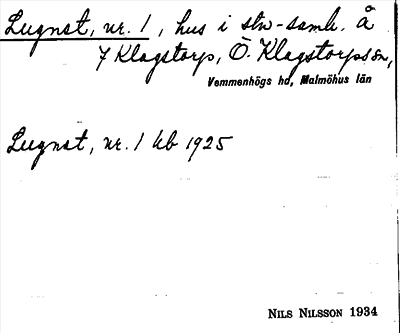 Lugnet, nr. 1, hus i stn-samh. å
7 Klagstorp, Ö. Klagstorps sn,
Vemmenhögs hd, Malmöhus län
Lugnet, nr. 1 kb 1925
NILS NILSSON 1934